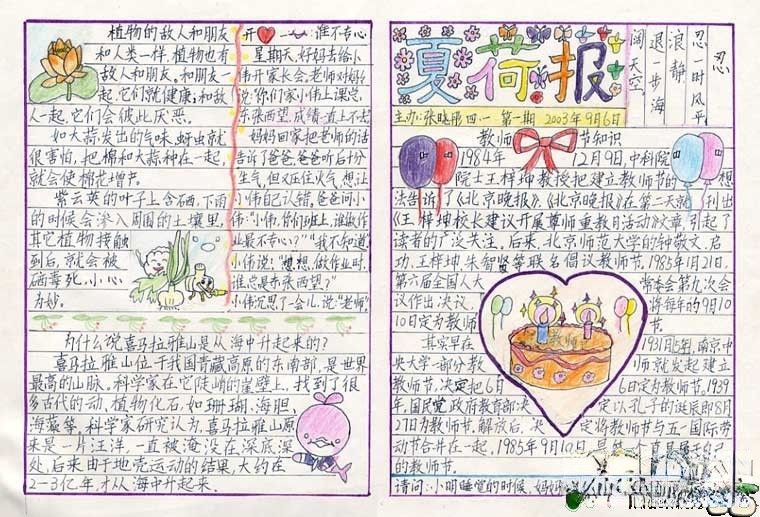 植物的敌人和朋友
和人类一样,植物也有
敌人和朋友。和朋友一
起,它们就健康;和敌
人一起,它们会彼此厌恶。
如大蒜发出的气味,蚜虫就
很害怕。把棉和大蒜种在一起,
就会使棉花增产。
紫云英的叶子上含硒,下雨
的时候会渗入周围的土壤里,
其它植物接触
到后,就会被
毒死。小心
为妙。
开心一 谁不专心
星期天,妈妈去给小
伟开家长会,老师对妈妈
说:“你们家小伟上课总
东张西望,成绩一直上不去
妈妈回家把老师的话
告诉了爸爸。爸爸听后十分
生气,但又压住火气,想让
小伟自己认错,爸爸问小
伟:“小伟,你们班上,谁做作
业最不专心?”“我不知道”
小伟说:“想想,做作业时,
谁总是东张西望?”
小伟沉思了一会儿,说“老师”。
为什么说喜马拉雅山是从海中升起来的?
喜马拉雅山位于我国青藏高原的东南部,是世界
最高的山脉。科学家在它陡峭的崖壁上,找到了很
多古代的动、植物化石,如珊瑚、海胆、
海藻等。科学家研究认为,喜马拉雅山原
来是一片汪洋,一直被淹没在深底深
处,后来由于地壳运动的结果,大约在
2-3亿年才从海中升起来。
夏荷报
忍
忍一时风平
浪静
退一步海
阔天空
主办:张晓 四·一 第一期 2003年9月6日
教师节知识
1984年 12月9日,中科院
院士王梓坤教授把建立教师节的想
法告诉了《北京晚报》,《北京晚报》在第二天就刊出
《王梓坤校长建议开展尊师重教日活动》文章,引起了
读者的广泛关注。后来,北京师范大学的钟敬文、启
功、王梓坤、朱智贤等联名倡议教师节。1985年1月21日,
第六届全国人大常委会第九次会
议作出决议,将每年的9月10
10日定为教师节。
其实早在1931年,南京中
央大学一部分教师就发起建立
教师节,决定把6月6日定为教师节。1939
年,国民党政府教育部决定以孔子的诞辰即8月
27日为教师节。解放后,决定将教师节与五一国际劳
动节合并在一起。1985年9月10日,是第一个真
的教师节。
请问:小明睡觉的时候,妈妈